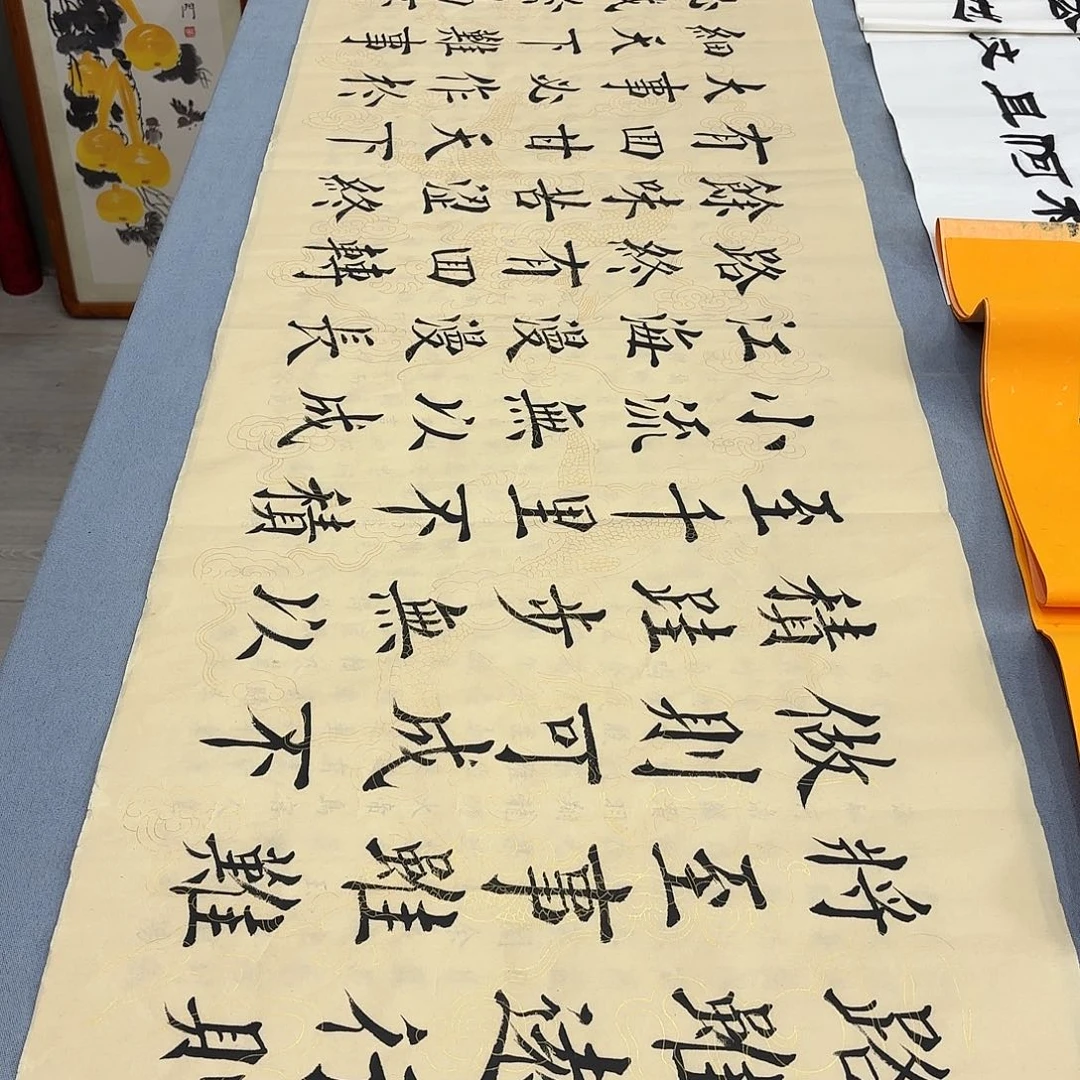 路雖遠行則
將至事雖難
做則可成不
積跬步無以
至千里不積
小流無以成
江海漫漫長
路終有回轉
餘味苦澀終
有回甘天下
大事必作於
細天下難事